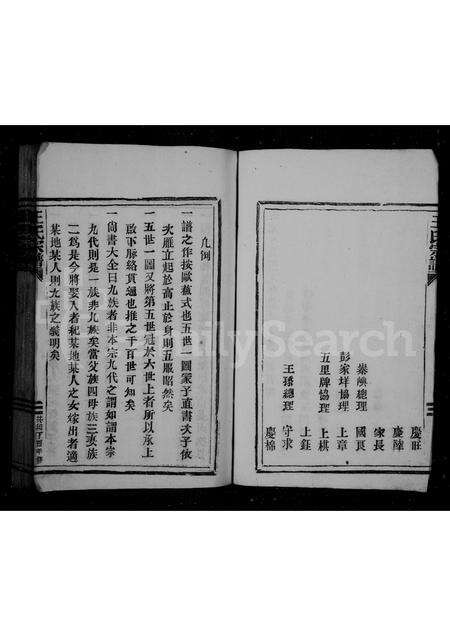 慶旺
慶陸
家長
秦澳總理 國良
彭家垟協理 上章
五里牌協理 上棋
上鉎
王璠總理 守求
慶棉
凡例
一譜之作按歐蘇式也五世一圖冢子直書次子依
次雁立起於高止於身則五服昭然矣
一五世一圖又將第五世冠於六世上者所以承上
啟下脈絡貫通也推之千百世可知矣
一尚書大全曰九族者非本宗九代之謂如謂本宗
九代則是一族非九族矣當父族四母族三妻族
二為是今將娶入者紀某地某人之女嫁出者適
某地某人則九族之義明矣
王氏宗譜
FamilySearch